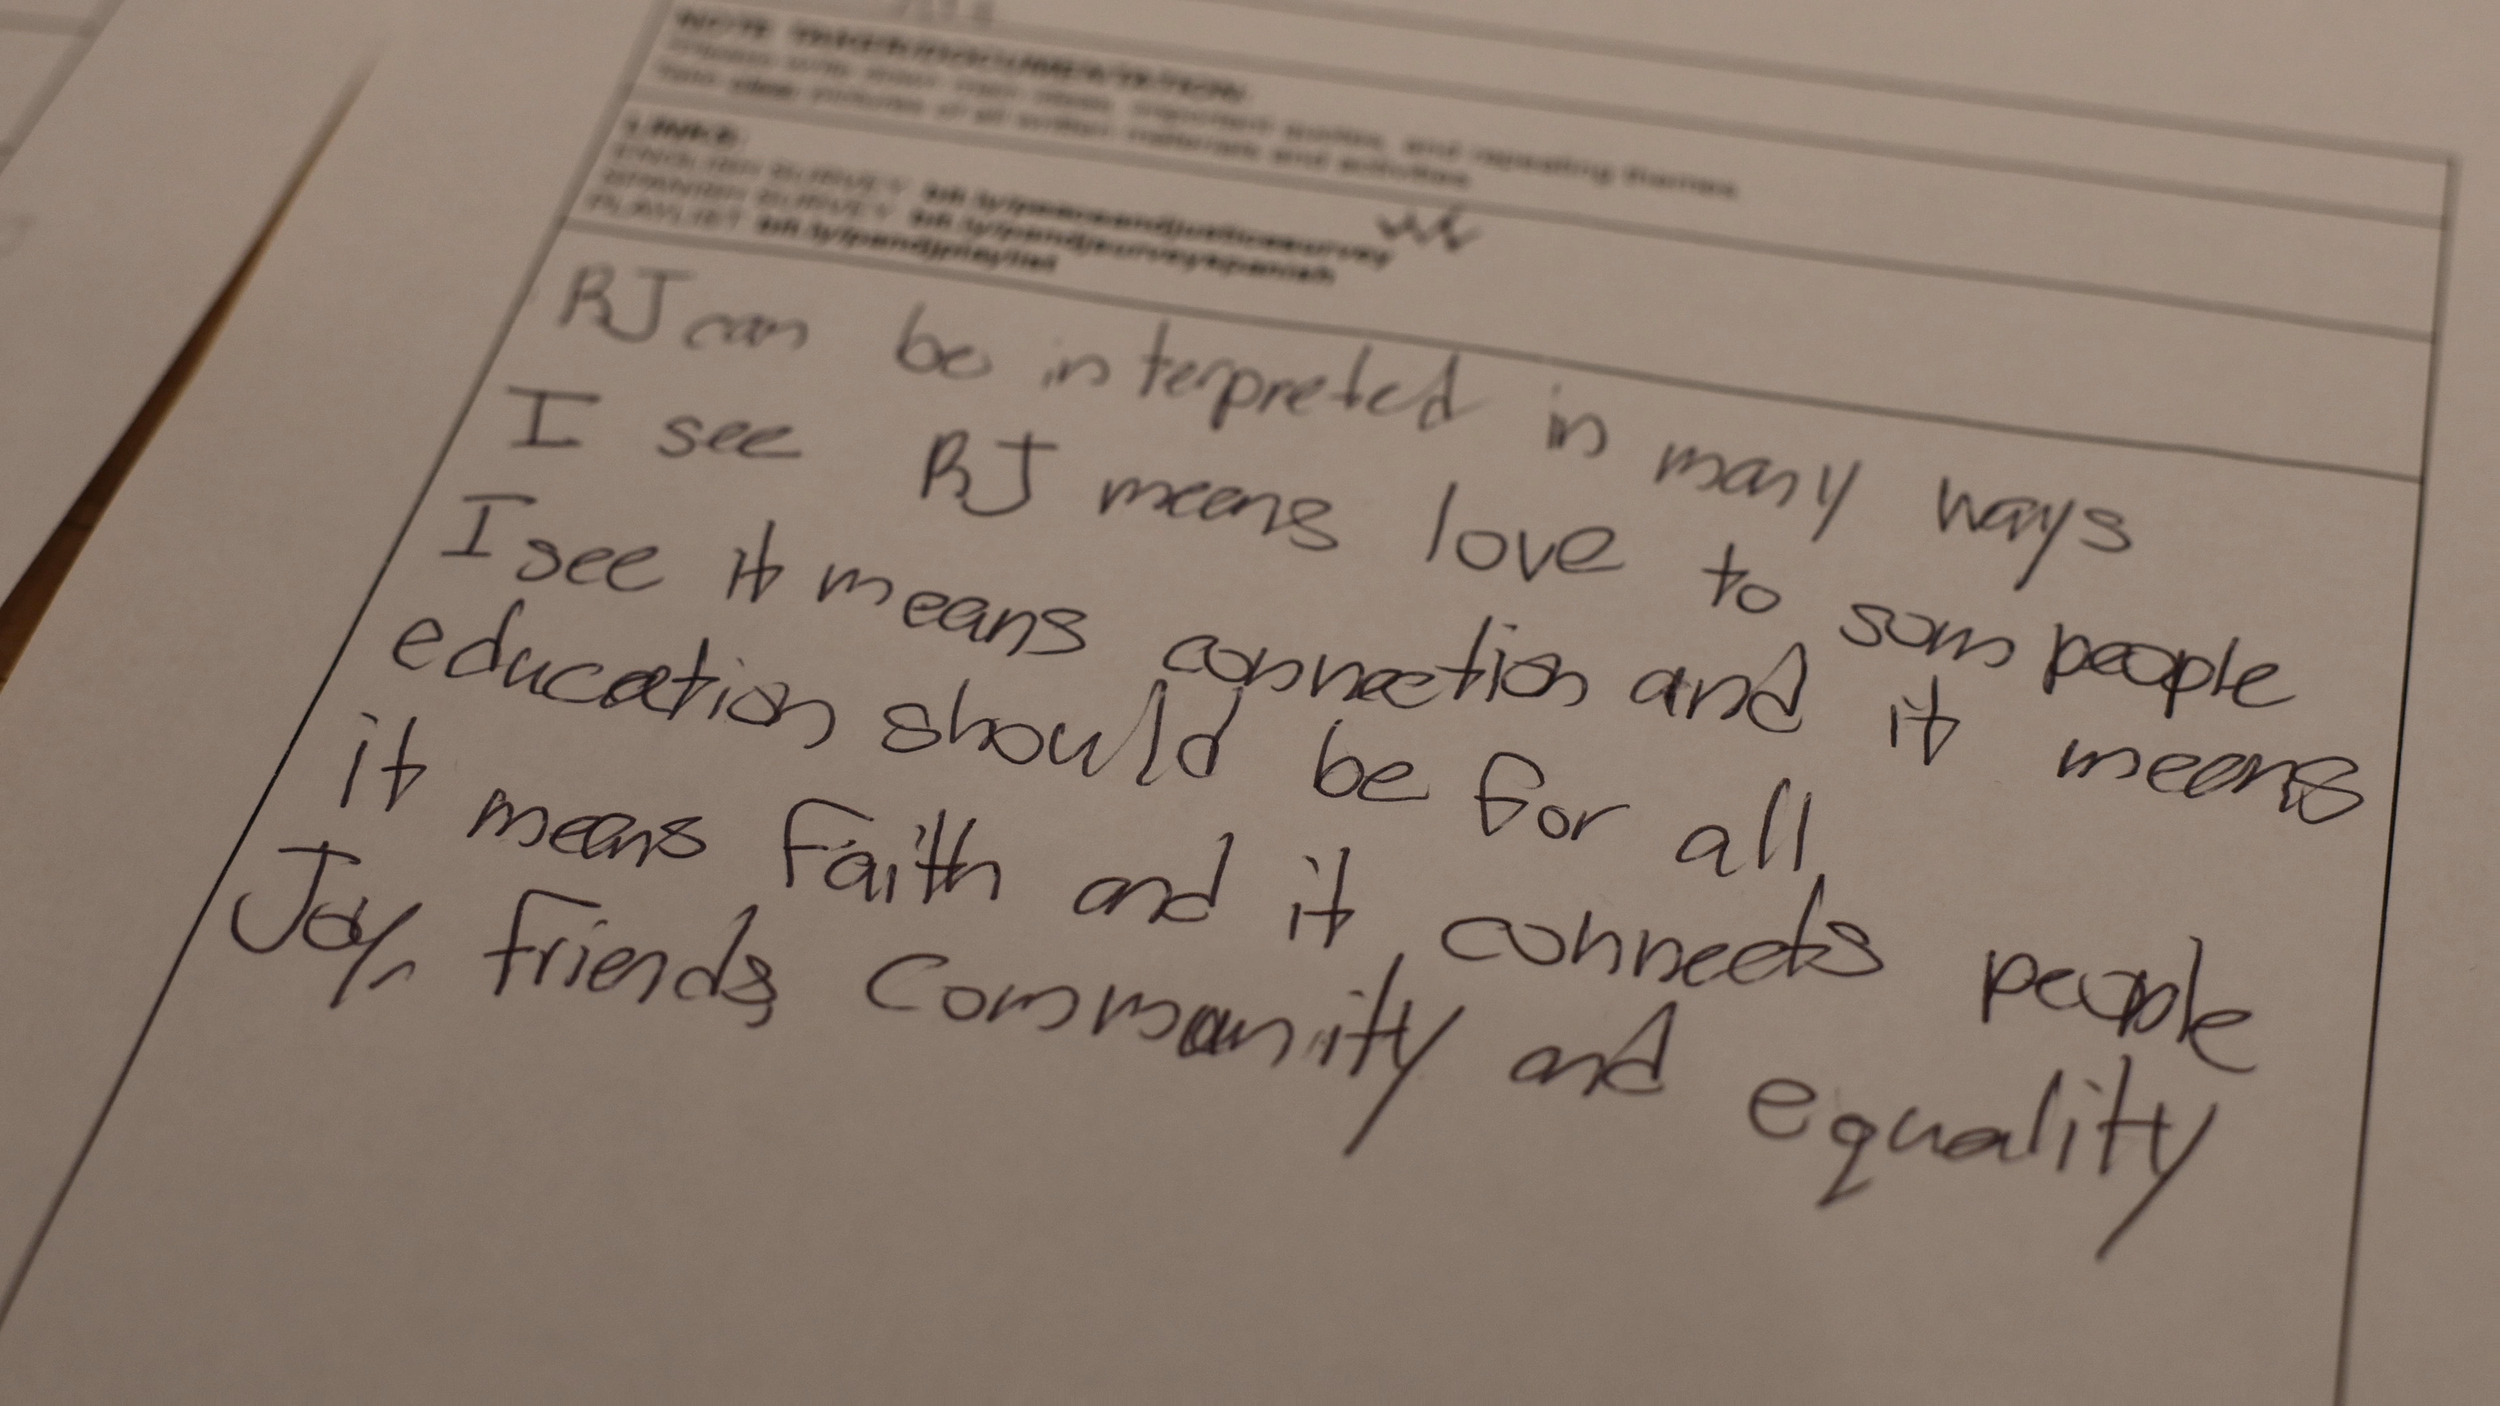 NOTE TAKER/DOCUMENTATION:
Please write down main ideas, important quotes, and repeating themes.
Take clear pictures of all written materials and activities.
LINKS:
ENGLISH SURVEY bit.ly/peaceandjusticesurvey
SPANISH SURVEY bit.ly/pandjsurveyspanish
PLAYLIST bit.ly/pandjplaylist
RJ can be interpreted in many ways
I see RJ means love to som people
I see it means connection and it means
education should be for all
it means Faith and it connects people
Joy, friends, Community and equality